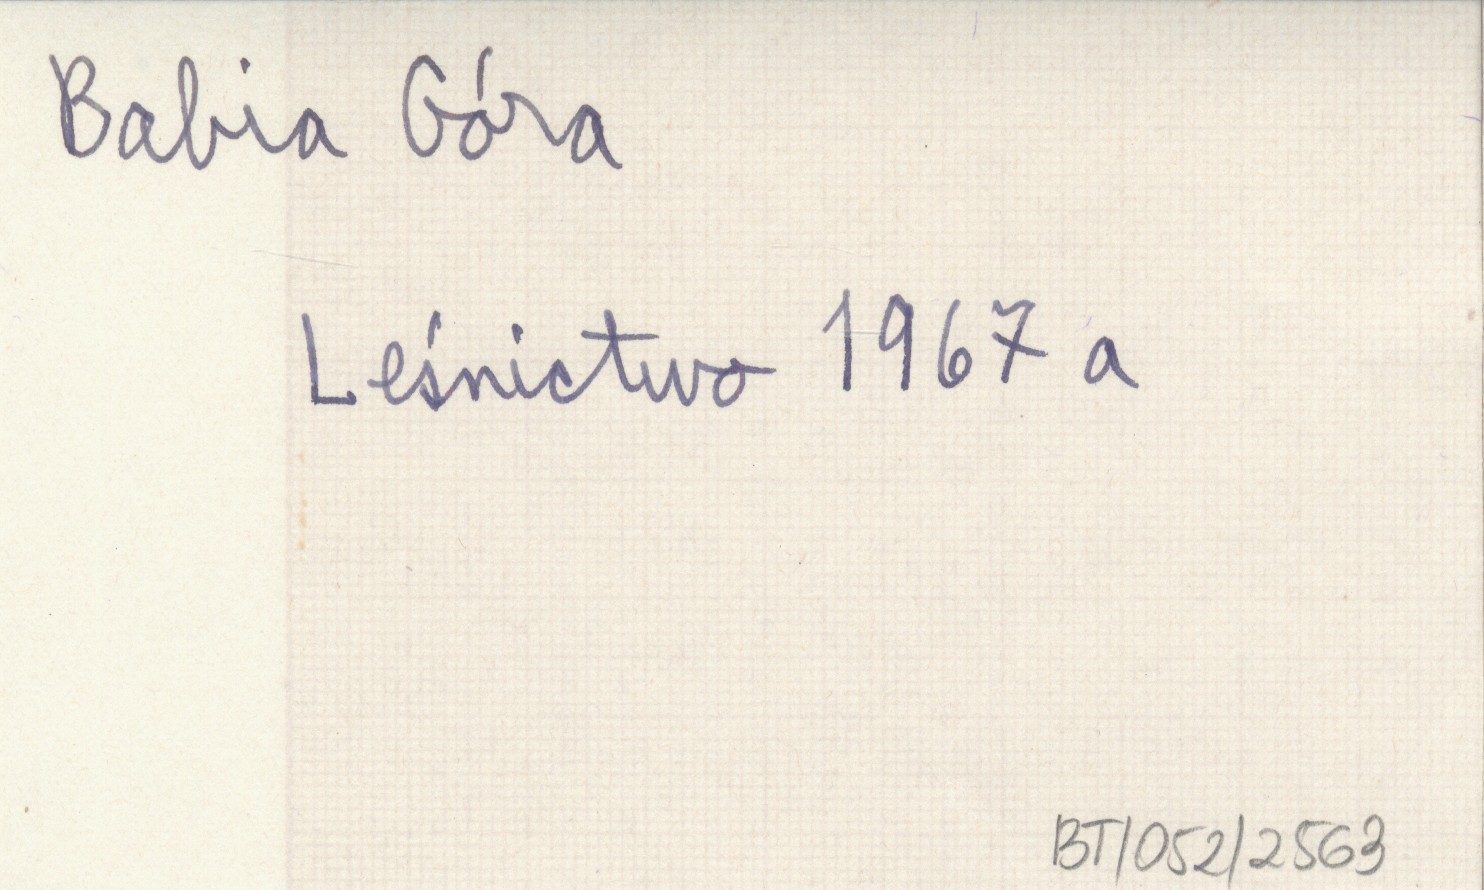 Babia Góra
Leśnictwo 1967 a
BT/052/2563